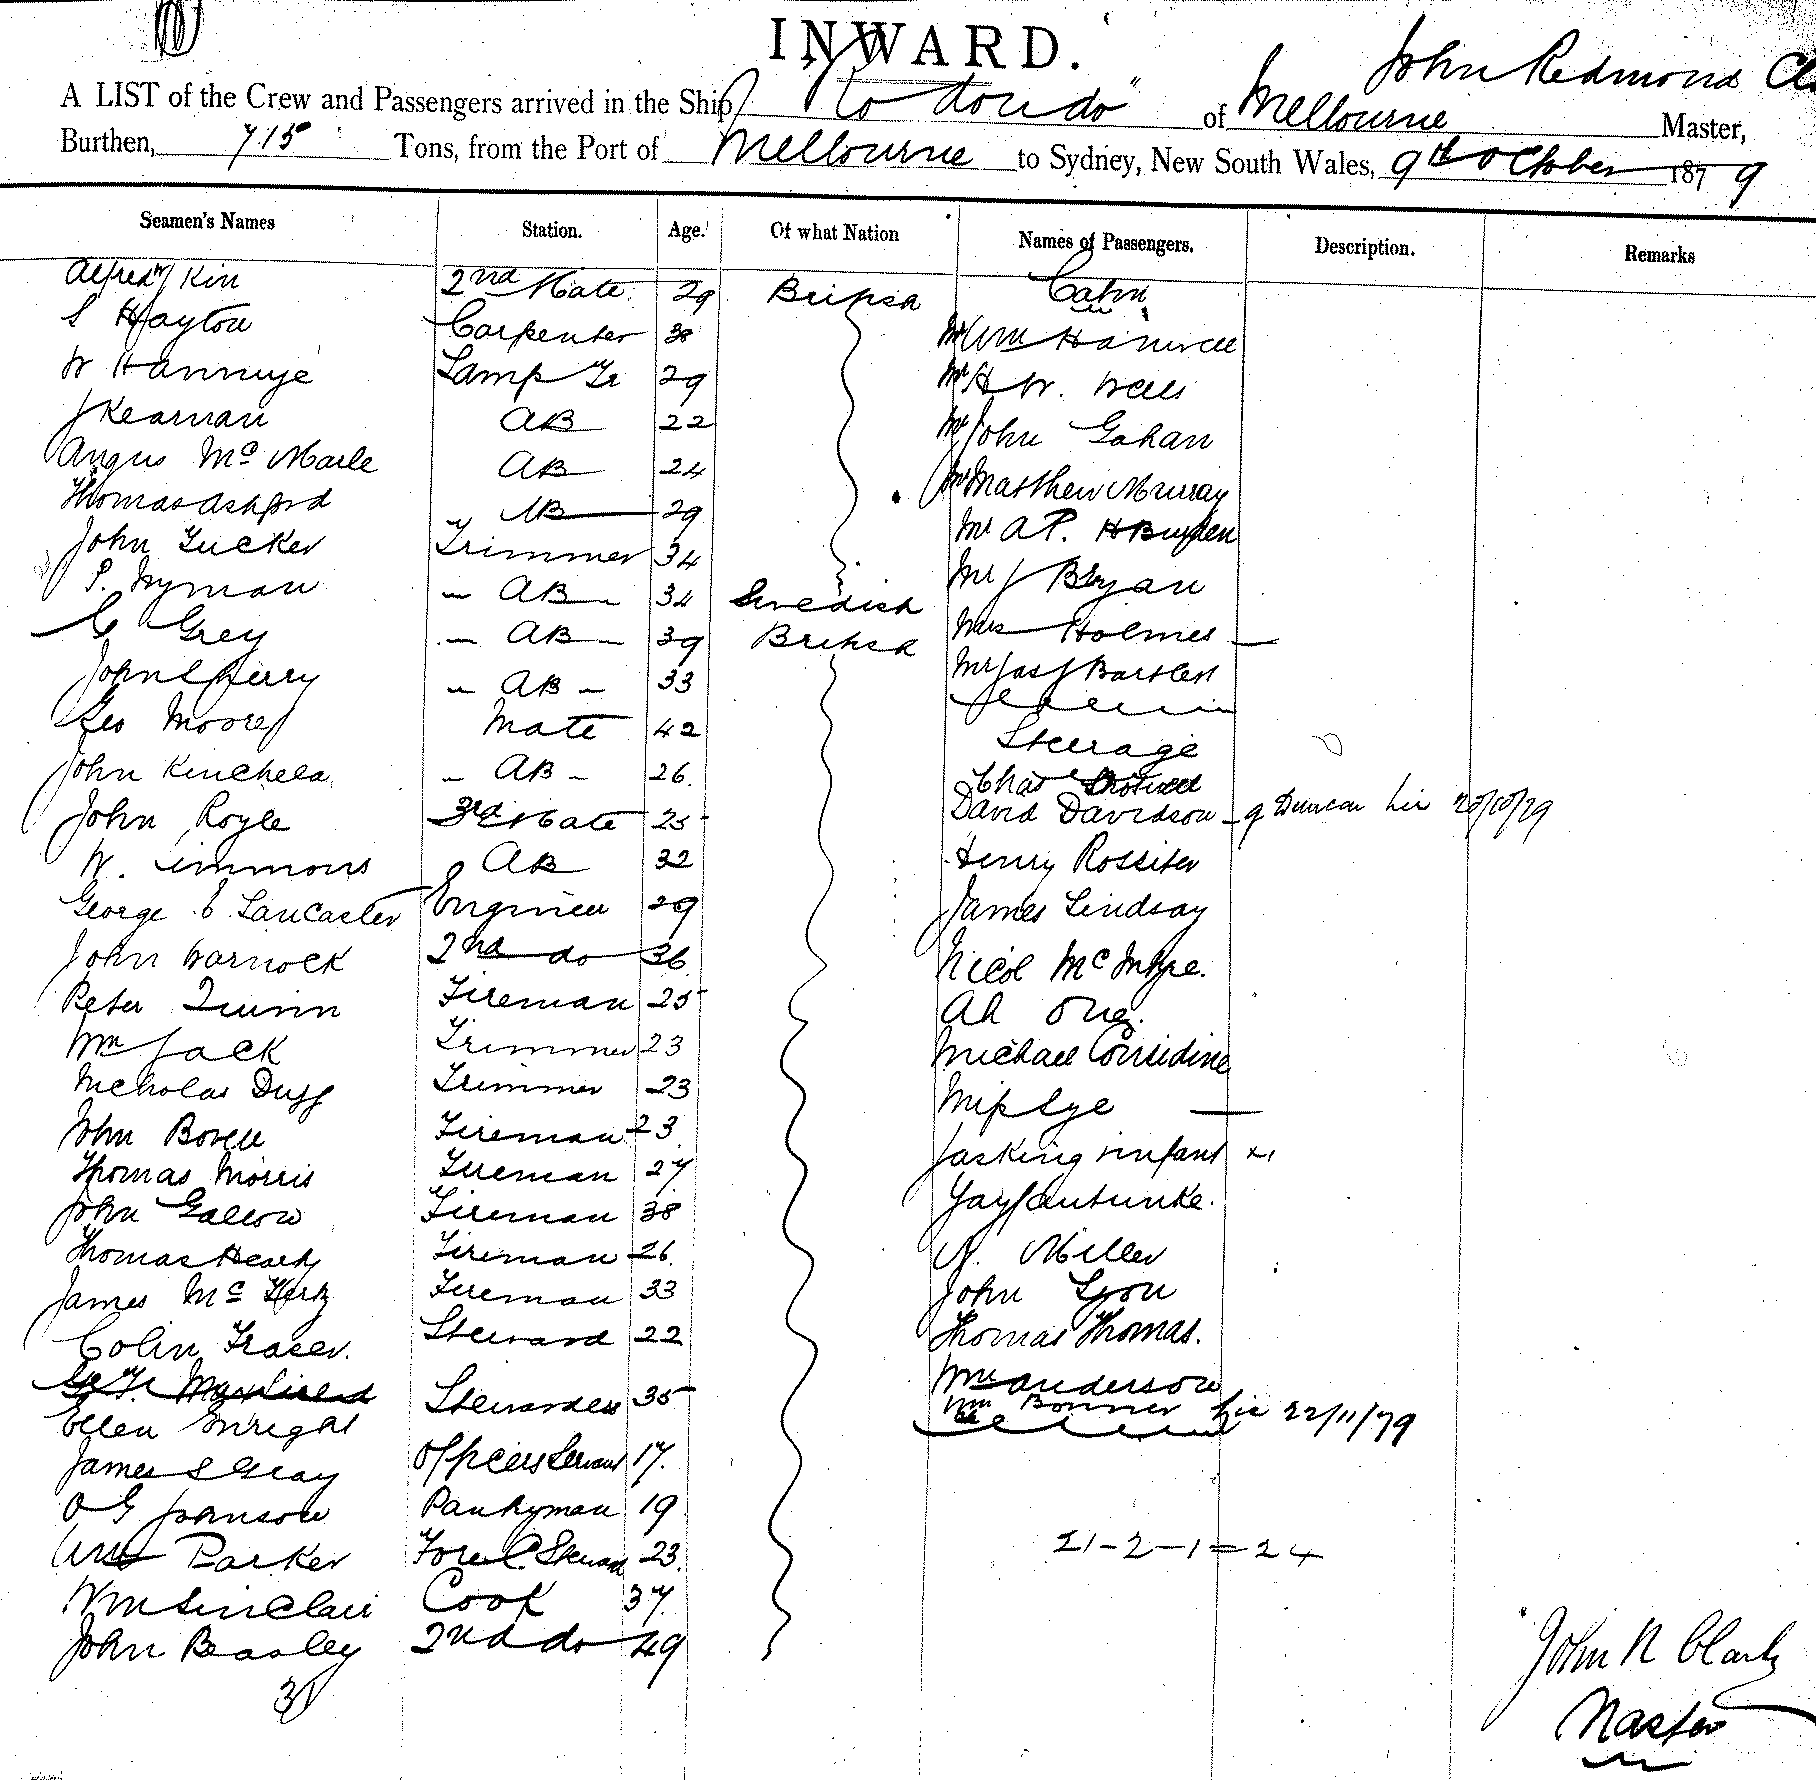 INWARD.
A LIST of the Crew and Passengers arrived in the Ship "Co dondo" of Melbourne John Redmond Master,
Burthen, 715 Tons, from the Port of Melbourne to Sydney, New South Wales, 9th October 1879
Seamen's Names Station. Age. Of what Nation Names of Passengers. Description. Remarks
Alfred Kin 2nd Mate 29 British Cabin
S Hayton Carpenter 38 Mr Wm Hanwell
W Lamp Tr 29 Mr H W. Wells
J Kearnan AB 22 Mr John Gahan
Angus Mc AB 24 Mr Matthew Murray
Thomas Ashford AB 29 Mr A P.
John Tucker Trimmer 34 Mr J Bryan
P. Nyman - AB - 34 Swedish Mrs Holmes
C Grey - AB - 39 British Mr Jas J Bartlett
John Sherry - AB - 33
Geo Moore Mate 42 Steerage
John Kinchela - AB - 26. Chas
John Royle 3rd Mate 25 David Davidson - g Duncan Lir 20/10/79
W. Simmons AB 32 Henry Rossiter
George E. Lancaster Engineer 29 James Lindsay
John Warnock 2nd do 36 Nicol McIntyre.
Peter Quinn Fireman 25 Ah
Wm Jack Trimmer 23 Michael Considine
Nicholas Duff Trimmer 23
John Bovell Fireman 23 infant
Thomas Morris Fireman 27
John Gallow Fireman 38 Miller
Thomas Fireman 26. John Lyon
James Mc Fireman 33 Thomas Thomas.
Colin Fraser. Steward 22 Wm Anderson
Ellen Enright Stewardess 35 Wm Bonner Lir 22/11/79
James S Gray Officers Servant 17.
O G Johnson Pantryman 19
Wm Parker Fore C Steward 23. 21-2-1=24
Wm Sinclair Cook 37.
John Beasley 2nd do 49
31
John R Clark
Master